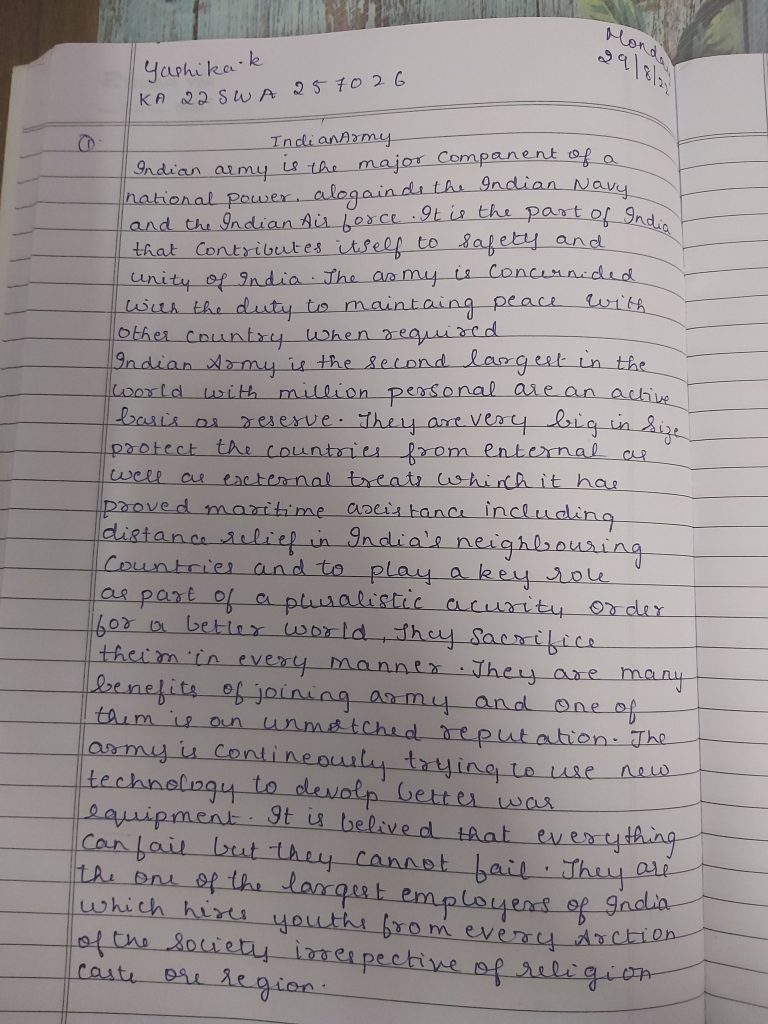 Monday
29/8/22
Yashika.k
KA 22 SWA 257026
① IndianArmy
Indian army is the major Companent of a
national power. alogainds the Indian Navy
and the Indian Air force. It is the part of India
that Contributes itself to Safety and
unity of India. The army is Concernided
with the duty to maintaing peace with
other country when required
Indian Army is the second largest in the
world with million personal are an active
basis or reserve. They are very big in Size
protect the countries from enternal as
well as external treats whihch it has
proved maritime assistance including
distance relief in India's neighbouring
Countries and to play a key role
as part of a pluralistic acurity order
for a better world, They Sacrifice
theim in every manner. They are many
benefits of joining army and one of
them is an unmatched reputation. The
army is contineously trying to use new
technology to devolp better war
equipment. It is belived that everything
Can fail but they cannot fail. They are
the one of the largest employers of India
which hires youths from every Arction
of the Society irrespective of religion
caste ore region.